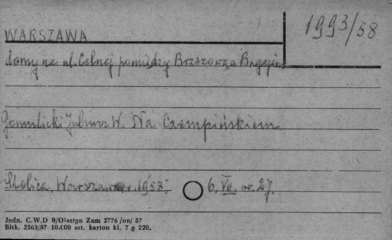 WARSZAWA
1993/58
domy na ul. Celnej pomiędzy Brzozową a
Gomulicki Juliusz W. Na Czempińskiem
Stolica, Warszawa r. 1958; 6.VII, nr. 27.
Jedn. C.W.D B/Olsztyn Zam 2776/on/57
Bisk. 2563/57 10.000 szt. karton kl. 7 g 220.